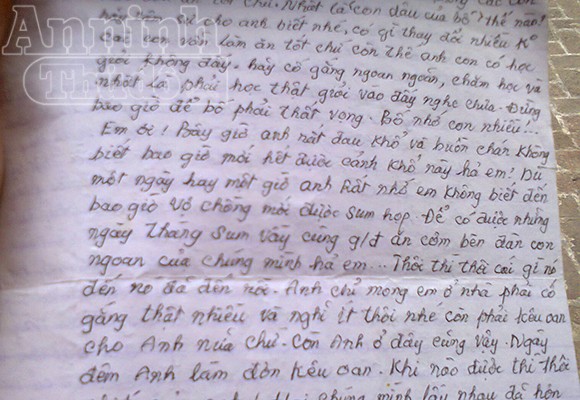 An ninh
Thủ đô
chứ. Nhất là con dâu của bố? Thế nào!
sự cho anh biết nhé, có gì thay đổi nhiều K°
con vốn làm ăn tốt chứ còn thế anh con có học
giỏi không đấy. hãy cố gắng ngoan ngoãn, chăm học và
nhất là phải học thật giỏi vào đấy nghe chưa. Đừng
bao giờ để bố phải thất vọng. Bố nhớ con nhiều!..
Em ơi! Bây giờ anh rất đau khổ và buồn chán không
biết bao giờ mới hết được cảnh khổ này hả em! Dù
một ngày hay một giờ anh Rất nhớ em không biết đến
bao giờ vợ chồng mới được sum họp. Để có được những
ngày tháng sum vầy cùng g/đ ăn cơm bên đàn con
ngoan của chúng mình hả em... Thôi thì thôi cái gì nó
đến nó đã đến rồi. Anh chỉ mong em ở nhà phải cố
gắng thật nhiều và nghĩ ít thôi nhé còn phải kêu oan
cho Anh nữa chứ. Còn Anh ở đây cũng vậy. Ngày
đêm Anh làm đơn kêu oan. Khi nào được thì thôi
chúng mình lấy nhau đã hơn